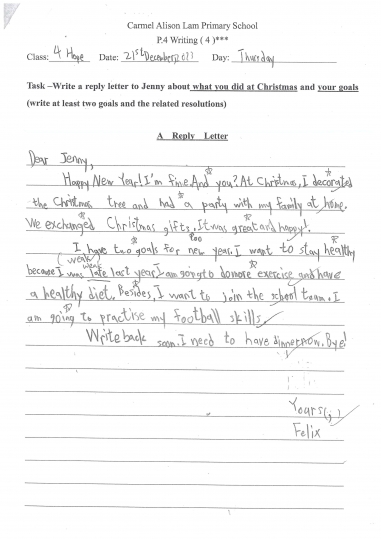 Carmel Alison Lam Primary School
P.4 Writing ( 4 )***
Class: 4 Hope Date: 21st December2017 Day: Thursday
Task –Write a reply letter to Jenny about what you did at Christmas and your goals
(write at least two goals and the related resolutions)
A Reply Letter
Dear Jenny,
Happy New Year! I'm fine. And you? At Christmas, I decorated
the Christmas tree and had a party with my family at home.
We exchanged Christmas gifts. It was great and happy!
I have two goals for new year. I want to stay healthy
because I was late last year. I am going to do more exercise and have
a healthy diet. Besides, I want to join the school team. I
am going to practise my football skills.
Write back soon. I need to have dinner now. Bye!
Yours(,)
Felix